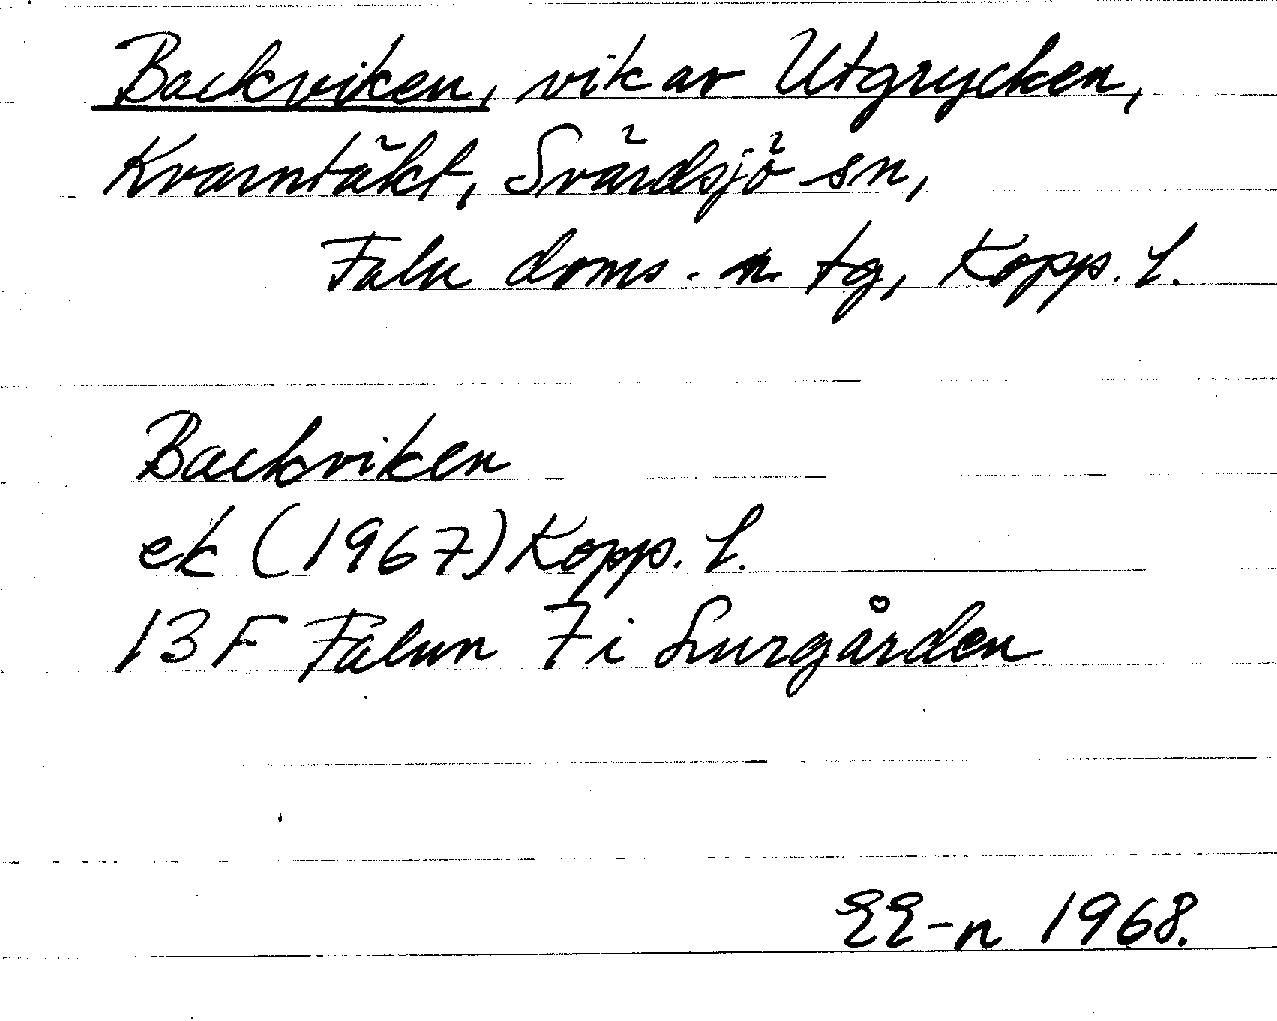 Backviken, vik av Utgrycken,
Kvarntäkt, Svärdsjö sn,
Falu doms. n. tg, Kopp. l.
Backviken
ek (1967) Kopp. l.
13 F Falun 7 i Lurgården
EE-n 1968.